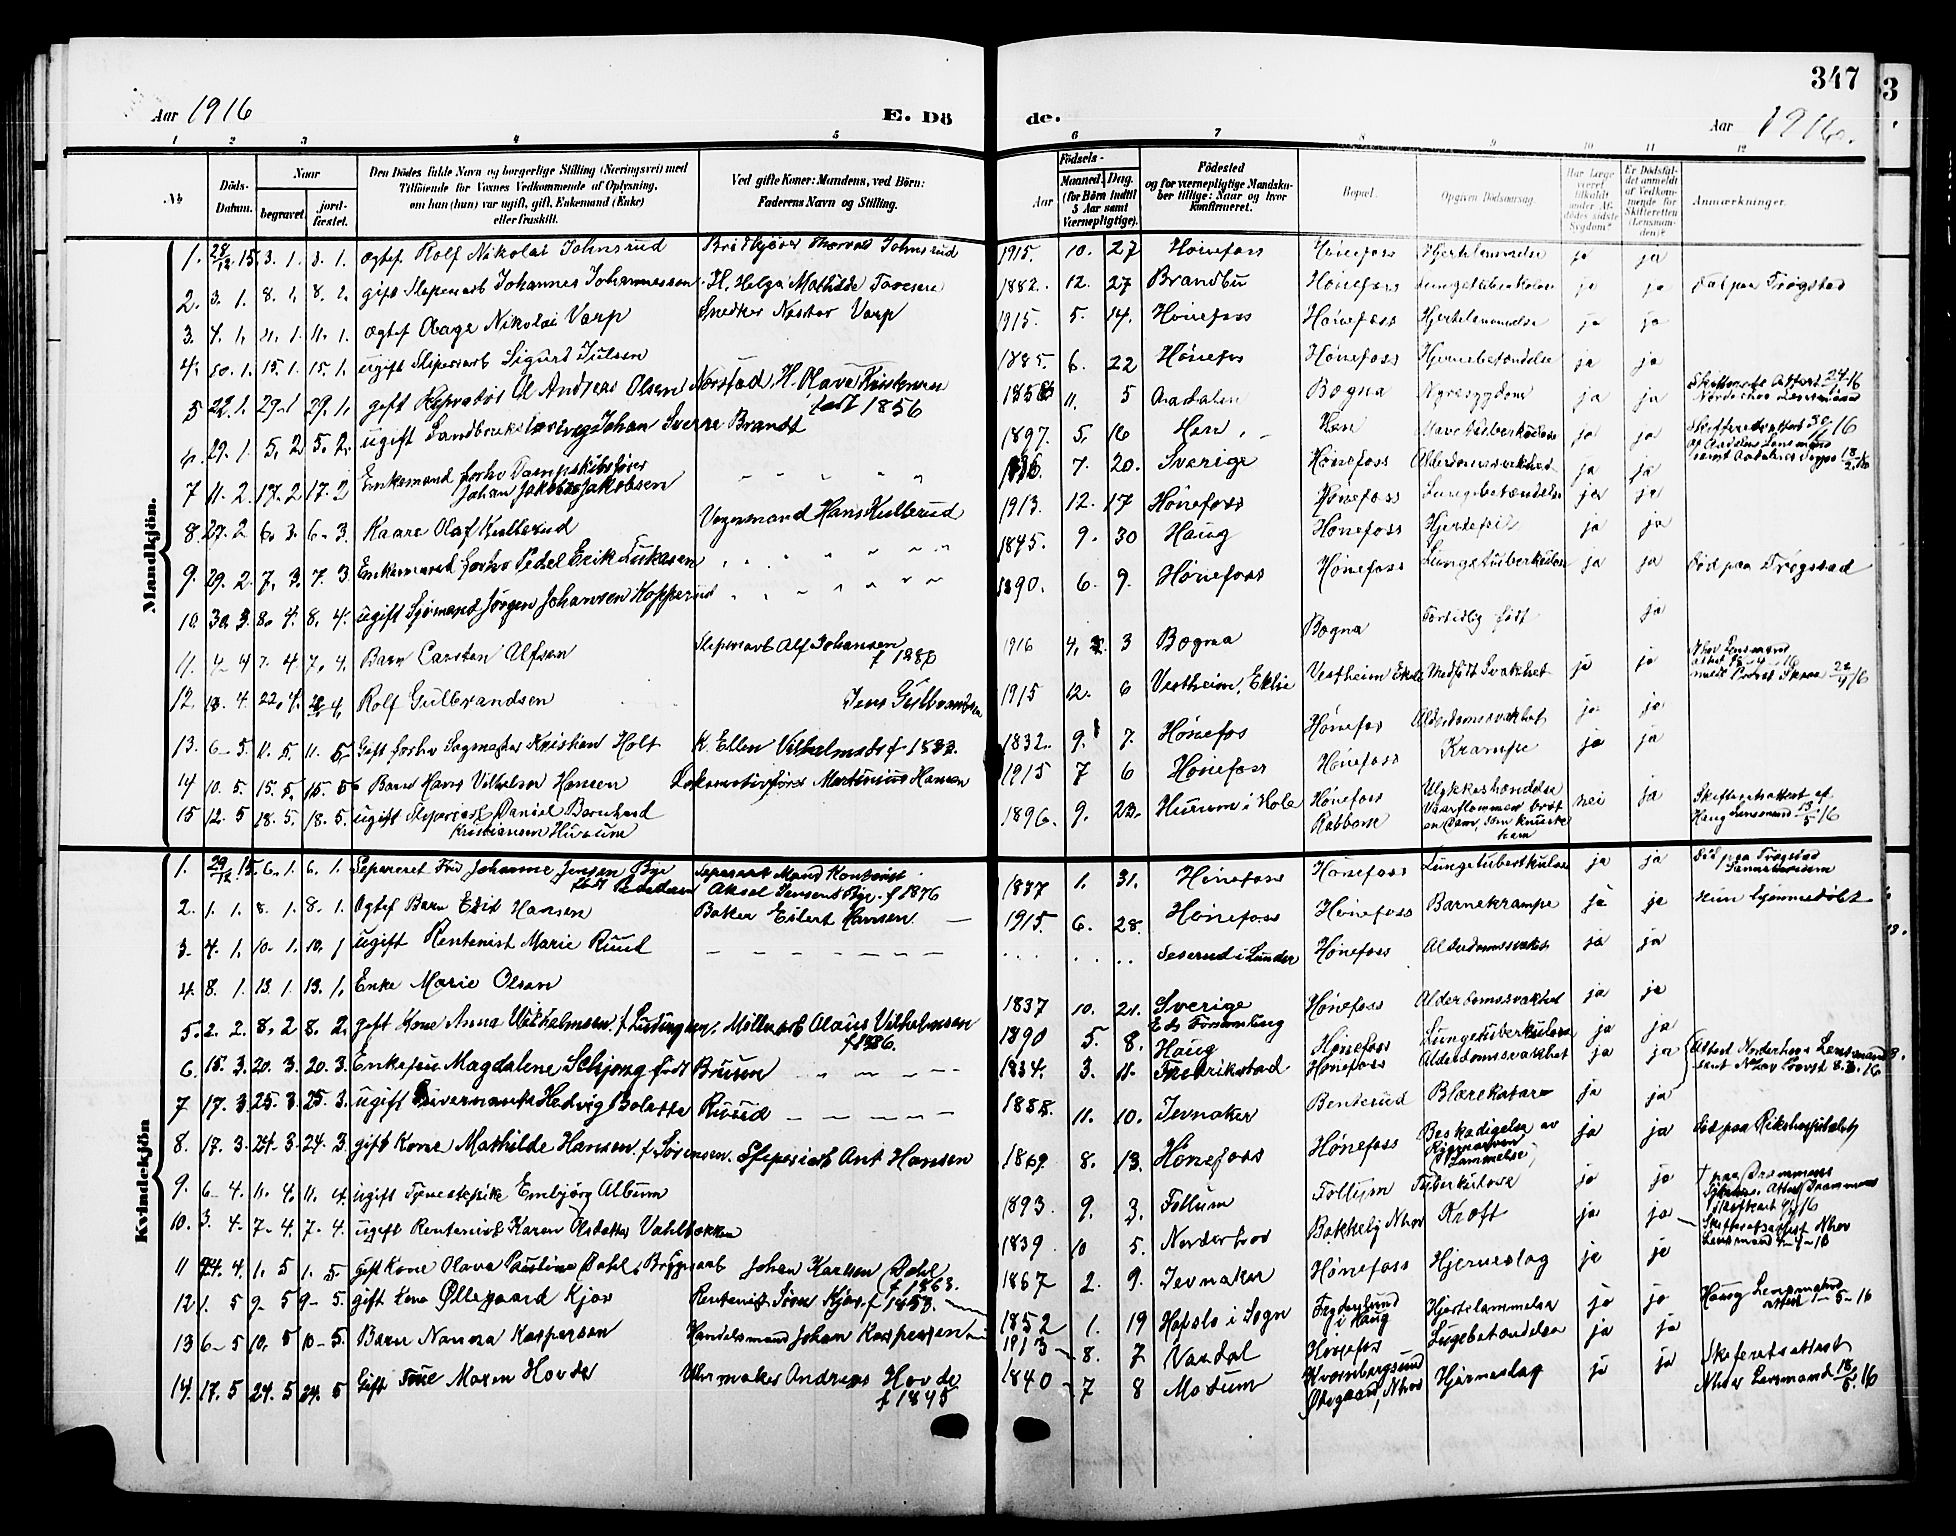 347
Aar 1916
E. Dö
de.
Aar 1916.
1 2 3 4 5 6 7 8 9 10 11 12
No
Döds-Datum.
Naar
begravet.
jordfæstet.
Den Dödes fulde Navn og borgerlige Stilling (Næringsvei) med
Tilföiende for Voxnes Vedkommende af Oplysning,
om han (hun) var ugift, gift, Enkemand (Enke)
eller fraskilt.
Ved gifte Koner: Mandens, ved Börn:
Faderens Navn og Stilling.
Födsels-
Aar
Maaned. Dag.
(for Börn indtil
5 Aar samt
Værnepligtige).
Födested
og for værnepligtige Mandskaber tillige: Naar og hvor
konfirmeret.
Bopæl.
Opgiven Dödsaarsag.
Har Læge været tilkaldt under Afdödes sidste Sygdom?
Er Dödsfaldet anmeldt af Vedkommende for Skifteretten (Lensmanden)?
Anmærkninger.
Mandkjön.
1. 28/12 15. 3. 1. 3. 1. Ogtef Rolf Nikolai Johnsrud Brødkjører Thorvald Johnsrud 1915. 10. 27 Hønefoss Hønefoss Hjertelammelse ja ja
2. 3. 1. 8. 1. 8. 1. gift Sliperiarb Johannes Johannessen H. Helga Mathilde 1882. 12. 27 Brandbu Hønefoss Lungetuberkulose ja ja Død paa Trøgstad
3. 4. 1. 11. 1. 11. 1. Ogtef Aage Nikolai Varp Snedker Nestor Varp 1915. 5. 14. Hønefoss Hønefoss Hjertelammelse ja ja
4. 10. 1. 15. 1. 15. 1. ugift Sliperiarb Sigurd Julsen 1885. 6. 22 Hønefos Hønefoss Hjernebetændelse ja ja
5 22. 1. 29. 1 29. 1. gift Ol Andreas Olsen Norstad, H. Olava Kristensen født 1856 11. 5 Aadalen Bogna Nyresygdom ja ja Skifterets Attest 24/1 16
Norderhov Lensmand
6. 29. 1. 5. 2 5. 2. ugift Johan Sverre Brandt 1897. 5. 16 Hen Hen Mavetuberkulose ja ja
7 11. 2. 17. 2 17. 2 Enkemand forhv Dampskibsfører
Johan Jakobsen 7. 20. Sverige Hønefoss Alderdomssvakhed ja ja
8. 27. 2 6. 3. 6. 3. Kaare Olaf Kullerud Vognmand Hans Kullerud 1913. 12. 17 Hønefoss Hønefoss Lungebetændelse ja ja
9. 29. 2. 7. 3. 7. 3. Enkemand forhv Pedel Erik Lukasen 1845. 9. 30 Haug Hønefoss Hjertefeil ja ja
10. 30. 3. 8. 4. 8. 4. ugift Sjømand Jørgen Johansen Kopperud 1890. 6. 9. Hønefoss Hønefoss Lungetuberkulose ja ja Død paa Trøgstad
11. 4. 4 7. 4. 7. 4. Barn Carsten Alfsen Sliperiarb Alf Johansen 1916 4. 3 Bogna Bogna Fortidlig født ja
12. 13. 4. 22. 4. 22. 4. Rolf Gulbrandsen Jens Gulbrandsen 1915 12. 6 Vestheim, Eklie Vestheim Eklie Medfødt Svakhet ja ja
13. 6. 5. 11. 5. 11. 5. Gift forhv Sagmester Kristian Holt K. Ellen Vilhelmsd f 1833. 1832. 9. 7. Hønefos Hønefos Alderdomssvakhet ja ja
14 10. 5. 15. 5. 15. 5. Barn Hans Vilhelm Hansen Lokomotivfører Martinius Hansen 1915 7 6 Hønefoss Hønefoss Krampe ja ja
15 12. 5 18. 5. 18. 5. ugift Sliperiarb Daniel Bernhard
Kristiansen Hurum 1896. 9. 22. Hurum i Hole Hønefoss
Rabbane Ulykkeshændelse
Vaarflommen brøt
en Dam, som knuste
ham nei ja Skifteretsattest af
Haug Lensmand 13/5 16
Kvindekjön
1. 29/12 15. 6. 1. 6. 1. Separeret Fru Johanne Jensen Bye
født Pedersen Separert Mand Kontorist
Aksel Jensen Bye f 1876 1877 1. 31. Hønefoss Hønefoss Lungetuberkulose ja ja Død paa Trøgstad
Sanatorium
2. 1. 1. 8. 1. 8. 1. Ogtef Barn Edit Hansen Baker Eilert Hansen. 1915. 6. 28. Hønefoss Hønefoss Barnekrampe ja ja Kun hjemmedøbt
3. 4. 1. 10. 1. 10. 1 ugift Rentenist Marie Ruud Seserud i Lunder Hønefoss Alderdomssvakhet ja ja
4. 8. 1. 13. 1. 13. 1. Enke Marie Olsen 1837 10. 21. Sverige
Eds Forsamling Hønefoss Alderdomssvakhet ja ja
5. 2. 2. 8. 2 8. 2. gift Kone Anna Vilhelmsen, Møllearb Olaus Vilhelmsen
f 1886. 1890 5. 8. Haug Hønefoss Lungetuberkulose ja ja
6. 15. 3. 20. 3. 20. 3. Enkefrue Magdalene Schjong født Bruun 1834. 3. 11. Fredrikstad Hønefoss Alderdomssvakhet ja ja Attest Norderhovs Lensmand
samt Nhov Provst 8. 3. 16
7 17. 3 25. 3. 25. 3. ugift Guvernante Hedvig Bolette Rused 1888. 11. 10. Jevnaker Benterud Blærekatarr ja ja
8. 17. 3. 24. 3. 24. 3 gift Kone Mathilde Hansen f Sørensen. Sliperiarb Ant Hansen 1869. 8. 13. Hønefoss Hønefoss Beskadigelse av
Rygmarven
(Lammelse) ja ja Død paa Rikshospitalet
9. 6. 4. 11. 4. 11. 4. ugift Tjenestepike Embjørg Album 1893 9. 3. Follum Follum Tuberkulose ja ja † paa Drammens
10. 3. 4. 7. 4. 7. 4. ugift Rentenist Karen Olsdatter Vahlbakken 1839 10 5. Norderhov Bakkely Nhov Kræft ja ja Skifteretsattest Nhov
Lensmand 4-4-16
11 24. 4. 1. 5 1. 5. gift Kone Olava Paulina Dahl, Bryggearb Johan Karlsen Dahl
f 1863. 1867 2. 9. Jevnaker Hønefoss Hjerneslag ja ja
12 1. 5 9. 5 9. 5. gift Lena Øllegaard Kjos Rentenist Søren Kjos f 1852 1. 19 Hafslo i Sogn
i Haug Hjertelammelse ja ja Haug Lensmand
attest 1-5-16
13 6. 5 10. 5 10. 5. Barn Nanna Kaspersen Handelsmand Johan Kaspersen 1913 8. 7 Vardal Hønefos Lugebetændelse ja ja
14. 17. 5 24. 5 24. 5 Gift Frue Maren Hovde Uhrmaker Andreas Hovde
f 1845 1840 7 8 Modum Kvernbergsund
Øvergaard, Nhov Hjerneslag ja ja Skifteretsattest
Nhov Lensmand 18/5. 16